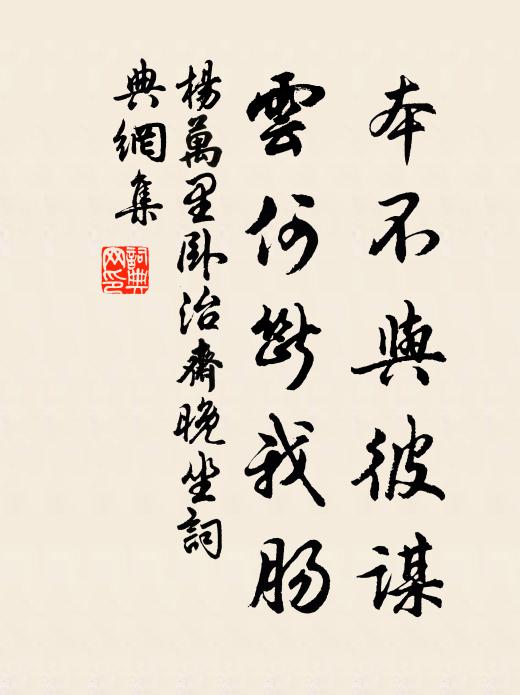 本不與彼謀
雲何斷我腸
楊萬里臥治齋晚坐詞
典網集
詞典
网印